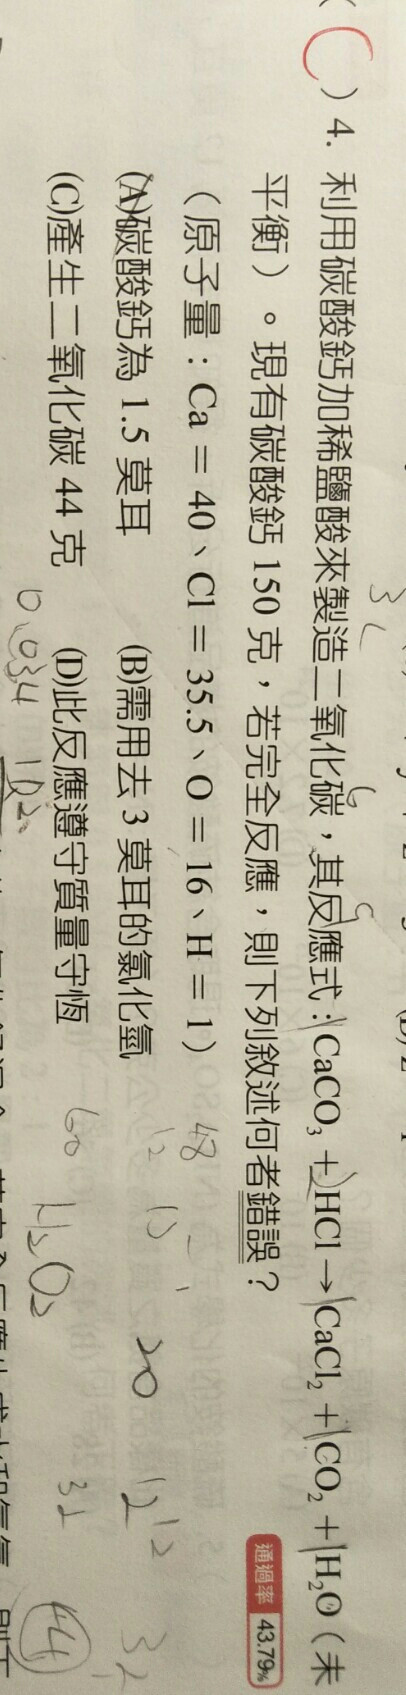 (C) 4. 利用碳酸鈣加稀鹽酸來製造二氧化碳，其反應式：CaCO₃＋2HCl→CaCl₂＋CO₂＋H₂O（未
平衡）。現有碳酸鈣 150 克，若完全反應，則下列敘述何者錯誤？ 通過率 43.79%
（原子量：Ca＝40、Cl＝35.5、O＝16、H＝1）
(A)碳酸鈣為 1.5 莫耳 (B)需用去 3 莫耳的氯化氫
(C)產生二氧化碳 44 克 (D)此反應遵守質量守恆
48
12
20
12
32
0.034
102
60
H₂O₂
32
44